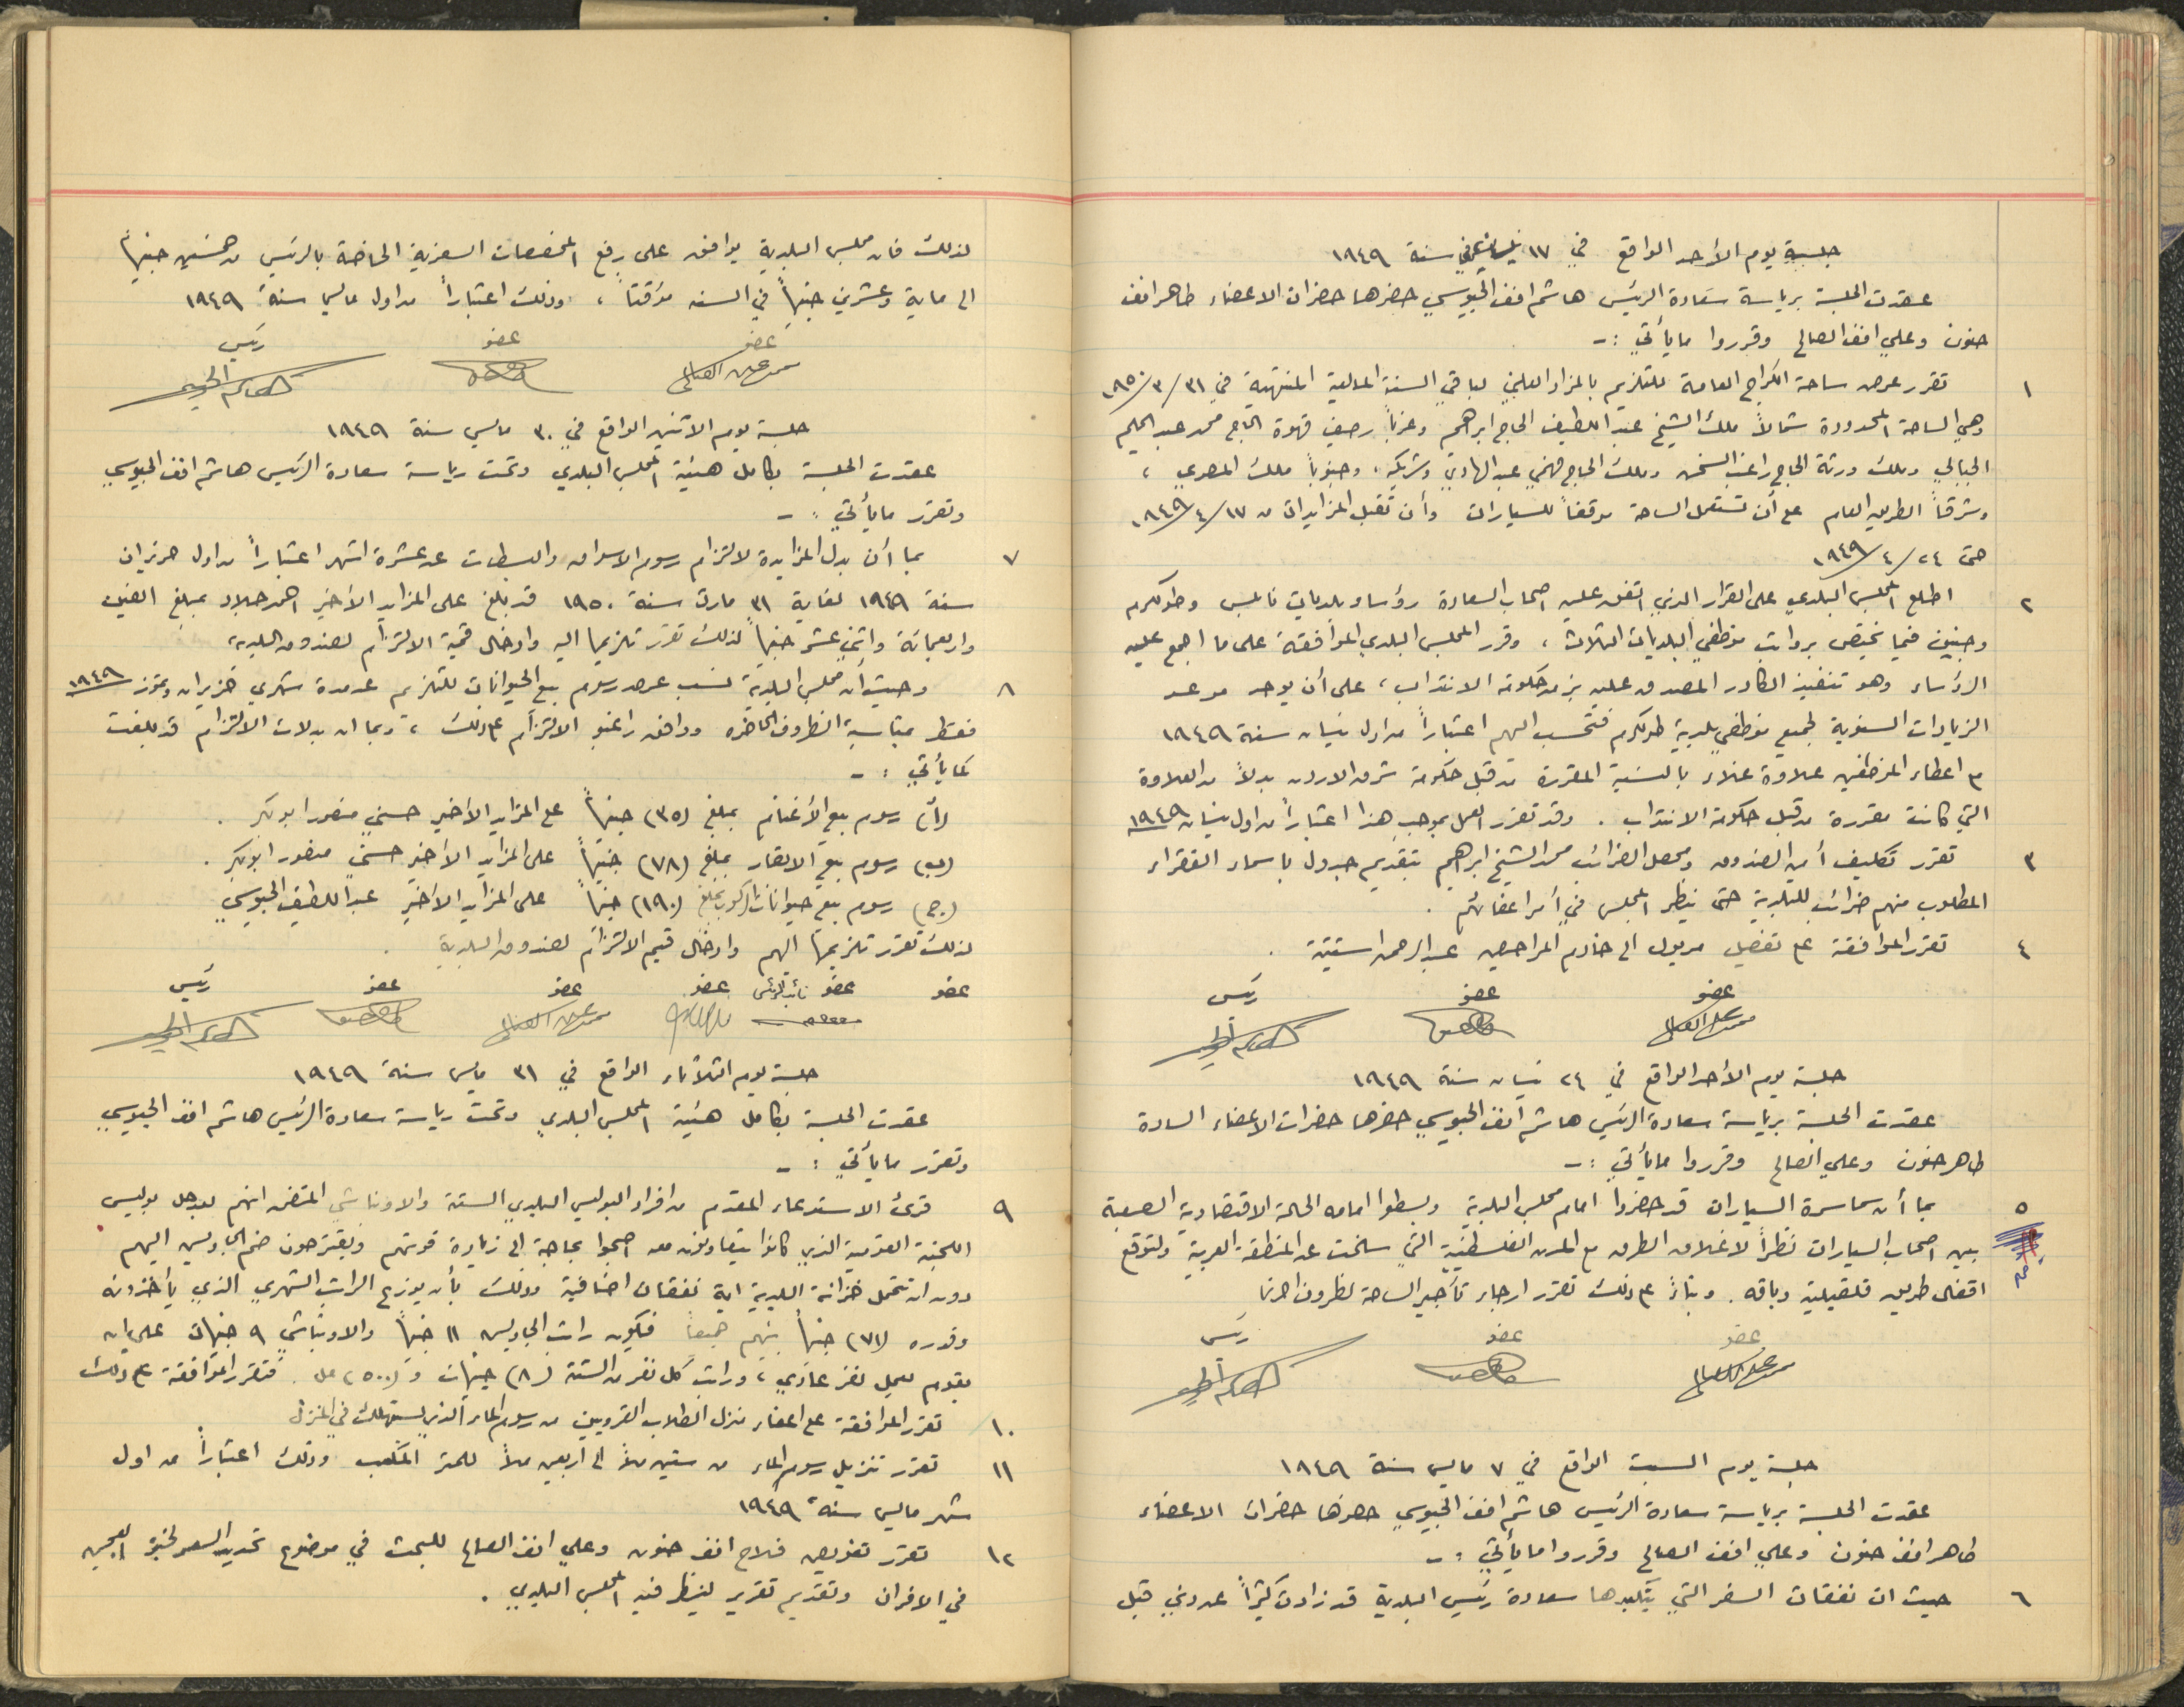 جلسة يوم الأحد الواقع في ١٧ نيسان سنة ١٩٤٩
عقدت الجلسة برياسة سعادة الرئيس هاشم افند الجيوسي حضرها حضرات الاعضاء طاهر افند
حنون وعلي افند الصالح وقرروا ما يأتي :-
١ تقرر عرض ساحة الكراج العامة للتلزيم بالمزاد العلني لباقي السنة المالية المنتهية في ٣١/٣/١٩٥٠
وهي الساحة المحدودة شمالاً ملك الشيخ عبد اللطيف الحاج ابراهيم وغرباً رصيف قهوة الحاج محمد عبد الحليم
الجبالي وملك ورثة الحاج راغب السخن وملك الحاج فهمي عبد الهادي وشريكه، وجنوباً ملك المصري ،
وشرقاً الطريق العام على أن تستعمل الساحة موقفاً للسيارات وأن تقبل المزايدات من ١٧/٤/١٩٤٩
حتى ٢٤/٤/١٩٤٩
٢ اطلع المجلس البلدي على القرار الذي اتفق عليه اصحاب السعادة رؤساء بلديات نابلس وطولكرم
وجنين فيما يختص برواتب موظفي البلديات الثلاث ، وقرر المجلس البلدي الموافقة على ما اجمع عليه
الرؤساء وهو تنفيذ الكادر المصدق عليه من حكومة الانتداب ، على أن يوحد موعد
الزيادات السنوية لجميع موظفي بلدية طولكرم فتحسب اليهم اعتباراً من اول نيسان سنة ١٩٤٩
م اعطاء الموظفين علاوة غلاء بالنسبة المقررة من قبل حكومة شرق الاردن بدلاً من العلاوة
التي كانت مقررة من قبل حكومة الانتداب . وقد تقرر العمل بموجب هذا اعتباراً من اول نيسان ١٩٤٩
٣ تقرر تكليف أمين الصندوق ومحصل الضرائب محمد الشيخ ابراهيم بتقديم جدول باسماء الفقراء
المطلوب منهم ضرائب للبلدية حتى ينظر المجلس في أمر اعفائهم .
٤ تقرر الموافقة على تفصيل مريول الى خادم المراحيض عبد الرحمن استيتية .
عضو عضو رئيس
جلسة يوم الأحد الواقع في ٢٤ نيسان سنة ١٩٤٩
عقدت الجلسة برياسة سعادة الرئيس هاشم افند الجيوسي حضرها حضرات الاعضاء السادة
طاهر حنون وعلي الصالح وقرروا ما يأتي :-
٥ بما أن سماسرة السيارات قد حضروا امام مجلس البلدية وبسطوا امامه الحالة الاقتصادية الصعبة
بين اصحاب السيارات نظراً لاغلاق الطرق مع المدن الفلسطينية التي سلخت عن المنطقة العربية ولتوقع
اقفال طريق قلقيلية وباقه . وبناءً على ذلك تقرر ارجاء تأجير الساحة لظروف اخرى
عضو عضو رئيس
جلسة يوم السبت الواقع في ٧ مايس سنة ١٩٤٩
عقدت الجلسة برياسة سعادة الرئيس هاشم افند الجيوسي حضرها حضرات الاعضاء
طاهر افند حنون وعلي افند الصالح وقرروا ما يأتي :-
٦ حيث ان نفقات السفر التي يتكبدها سعادة رئيس البلدية قد زادت كثيراً عن ذي قبل
لذلك فان مجلس البلدية يوافق على رفع المخصصات السفرية الخاصة بالرئيس من خمسين جنيهاً
الى ماية وعشرين جنيهاً في السنه مؤقتاً ، وذلك اعتباراً من اول مايس سنة ١٩٤٩
عضو عضو رئيس
جلسة يوم الاثنين الواقع في ٣٠ مايس سنة ١٩٤٩
عقدت الجلسة بكامل هيئة المجلس البلدي وتحت رياسة سعادة الرئيس هاشم افند الجيوسي
وتقرر ما يأتي :-
٧ بما أن بدل المزايدة لالتزام رسوم الاسواق والبسطات عن عشرة اشهر اعتباراً من اول حزيران
سنة ١٩٤٩ لغاية ٣١ مارت سنة ١٩٥٠ قد بلغ على المزايد الأخير احمد جلاد بمبلغ الفين
واربعمائة واثني عشر جنيهاً لذلك تقرر تلزيمها اليه وادخال قيمة الالتزام لصندوق البلدية،
٨ وحيث أن مجلس البلدية نسب عرض رسوم بيع الحيوانات للتلزيم عن مدة شهري حزيران وتموز ١٩٤٩
فقط بمناسبة الظروف الحاضره ووافق راغبو الالتزام على ذلك ، وبما ان بدلات الالتزام قد بلغت
كما يأتي :-
(أ) رسوم بيع الأغنام بمبلغ (٣٥) جنيهاً على المزايد الأخير حسني منصور ابو بكر .
(ب) رسوم بيع الابقار بمبلغ (٧٨) جنيهاً على المزايد الأخير حسني منصور ابو بكر .
(ج) رسوم بيع حيوانات الركوب بمبلغ (١٩٠) جنيهاً على المزايد الأخير عبد اللطيف الجيوسي
لذلك تقرر تلزيمها اليهم وادخال قيم الالتزام لصندوق البلدية .
عضو عضو نائب الرئيس عضو عضو عضو رئيس
جلسة يوم الثلاثاء الواقع في ٣١ مايس سنة ١٩٤٩
عقدت الجلسة بكامل هيئة المجلس البلدي وتحت رياسة سعادة الرئيس هاشم افند الجيوسي
وتقرر ما يأتي :-
٩ قرئ الاستدعاء المقدم من افراد البوليس البلدي الستة والاونباشي المتضمن انهم بعد حل بوليس
اللجنة القومية الذي كانوا يتعاونون معه اصبحوا بحاجة الى زيادة قوتهم ويقترحون ضم الجاويس اليهم
دون ان تتحمل خزانة البلدية اية نفقات اضافية وذلك بأن يوزع الراتب الشهري الذي يأخذونه
وقدره (٧١) جنيهاً بينهم جميعاً فيكون راتب الجاويش ١١ جنيهاً والاونباشي ٩ جنيهات على ان
يقوم بعمل نفر عادي ، وراتب كل نفر من الستة (٨) جنيهات و (٥٠٠) مل . فتقرر الموافقة على ذلك
١٠ تقرر الموافقة على اعفاء منزل الطلاب القرويين من رسوم الماء الذي يستهلك في المنزل
١١ تقرر تنزيل رسوم الماء من ستين ملاً الى اربعين ملاً للمتر المكعب وذلك اعتباراً من اول
شهر مايس سنة ١٩٤٩
١٢ تقرر تفويض فلاح افند حنون وعلي افند الصالح للبحث في موضوع تحديد السعر لخبز العجين
في الافران وتقديم تقرير لينظر فيه المجلس البلدي .